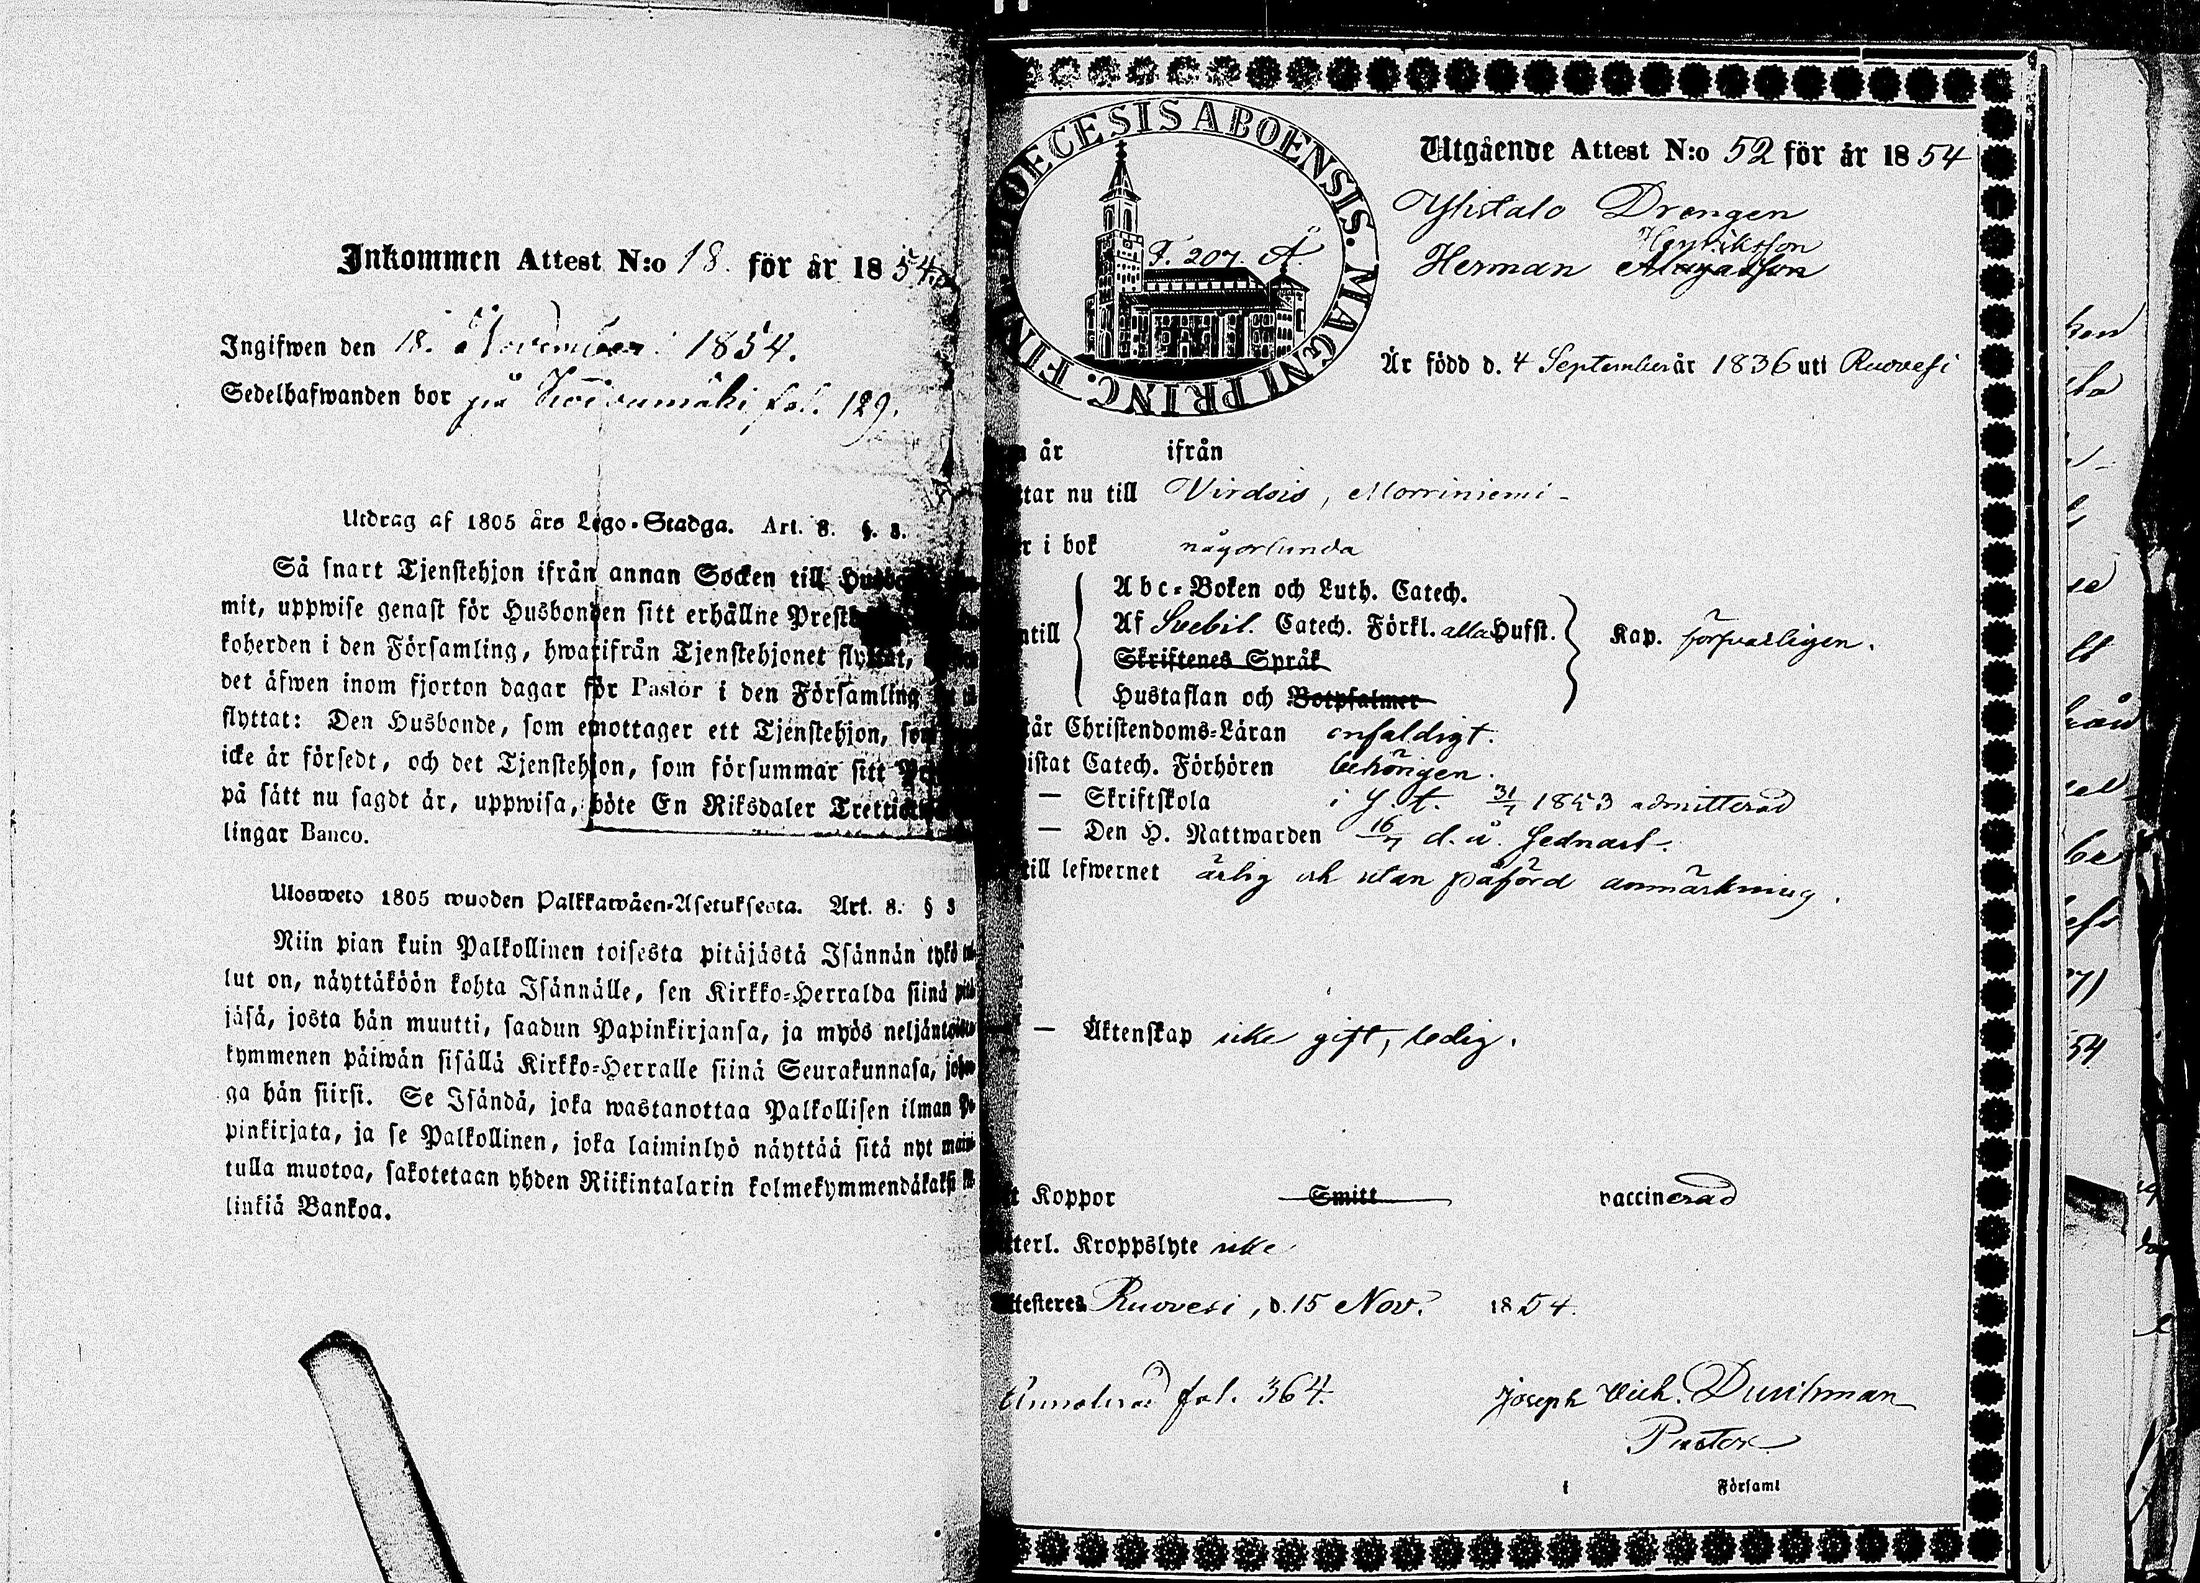 Inkommen Attest N:o 18. för år 1854.
Ingifwen den 18. November 1854.
Sedelhafwanden bor på fol. 129.
Utdrag af 1805 års Lego-Stadga. Art. 8. §. 3.
Så snart Tjenstehjon ifrån annan Socken till
mit, uppwise genast för Husbonden sitt erhållne
koherden i den Församling, hwarifrån Tjenstehjonet flyttat,
det äfwen inom fjorton dagar för Pastor i den Församling
flyttat: Den Husbonde, som emottager ett Tjenstehjon,
icke är försedt, och det Tjenstehjon, som försummar sitt
på sätt nu sagdt är, uppwisa, böte En Riksdaler
lingar Banco.
Ulosweto 1805 wuoden Palkkawäen-Asetuksesta. Art. 8. § 3
Niin pian kuin Palkollinen toisesta pitäjästä Isännän tykö
lut on, näyttäköön kohta Isännälle, sen Kirkko-Herralda siinä
jäsä, josta hän muutti, saadun Papinkirjansa, ja myös
kymmenen päiwän sisällä Kirkko-Herralle siinä Seurakunnasa,
ga hän siirsi. Se Isändä, joka wastanottaa Palkollisen ilman
pinkirjata, ja se Palkollinen, joka laiminlyö näyttää sitä nyt
tulla muotoa, sakotetaan yhden Riikintalarin kolmekymmendäkaksi
linkiä Bankoa.
DIOECESIS ABOENSIS. MAGNI PRINC. FINL.
F. 207. Å
Utgående Attest N:o 52 för år 1854
Ylistalo Drengen
Henriksson
Herman
Är född d. 4 September år 1836 uti Ruovesi
är ifrån
tar nu till Virdois, Morriniemi
i bok någorlunda
Abc-Boken och Luth. Catech.
Af Svebil. Catech. Förkl. alla Hufst.
Skriftenes Språk
Hustaflan och Botpsalmer
Kap. försvarligen.
Christendoms-Läran enfaldigt.
Catech. Förhören behörigen.
— Skriftskola i f. t. 31/7 1853 admitterad
— Den H. Nattwarden 16/7 d. å. sednast.
till lefwernet ärlig och utan påförd anmärkning.
— Äktenskap icke gift, ledig.
Koppor Smitt vaccinerad
Kroppslyte icke
Ruovesi, d. 15 Nov. 1854.
Annoterad fol. 364.
Joseph Wilh. Durchman
Pastor
i Församl